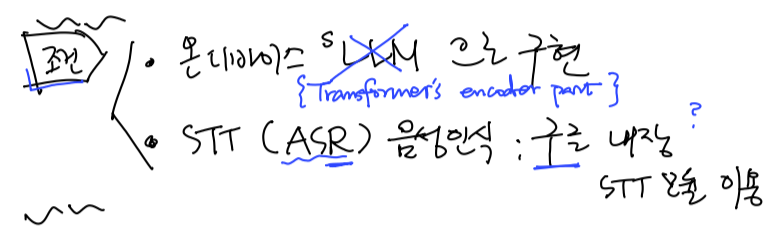 조건
• 온디바이스 sLLM 으로 구현
{Transformer's encoder part}
• STT (ASR) 음성인식 : 구글 내장?
STT 모듈 이용